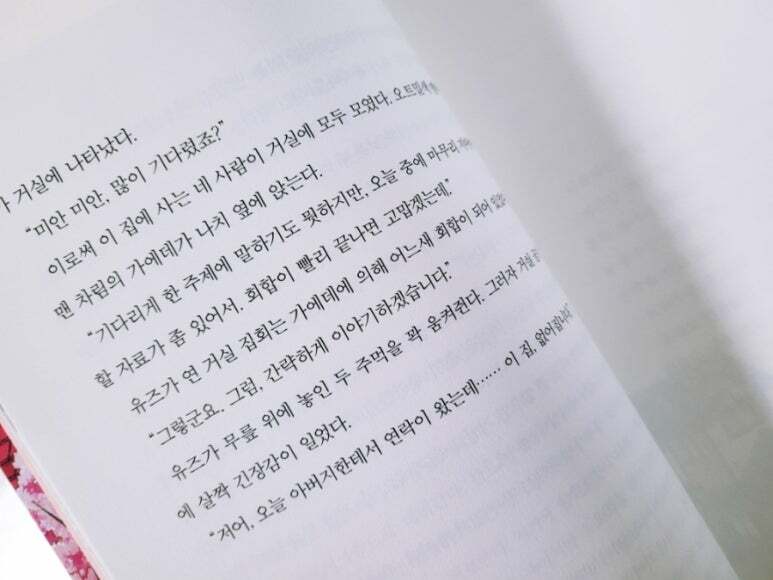 가 거실에 나타났다.
“미안 미안, 많이 기다렸죠?”
이로써 이 집에 사는 네 사람이 거실에 모두 모였다. 오트밀색
맨 차림의 가에데가 나치 옆에 앉는다.
“기다리게 한 주제에 말하기도 뭣하지만, 오늘 중에 마무리
할 자료가 좀 있어서. 회합이 빨리 끝나면 고맙겠는데.”
유즈가 연 거실 집회는 가에데에 의해 어느새 회합이 되어
“그렇군요. 그럼, 간략하게 이야기하겠습니다.”
유즈가 무릎 위에 놓인 두 주먹을 꽉 움켜쥔다. 그러자 거실
에 살짝 긴장감이 일었다.
“저어, 오늘 아버지한테서 연락이 왔는데…… 이 집, 없어집니다.”